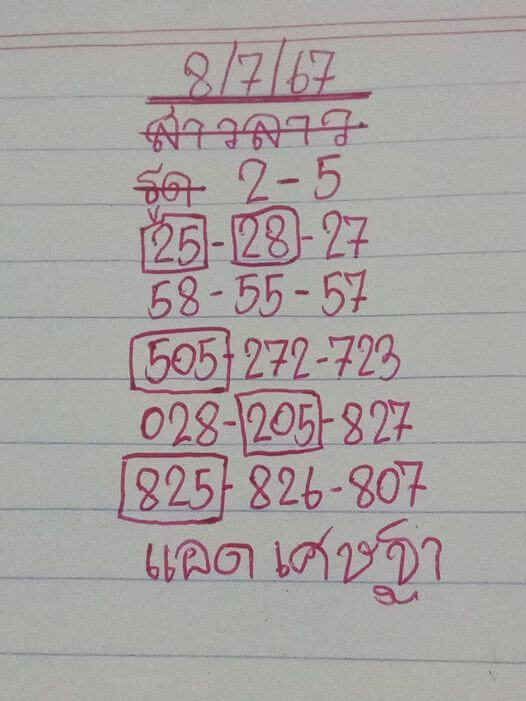 8/7/67
สาวลาว
รูด 2-5
25-28-27
58-55-57
505-272-723
028-205-827
825-826-807
แอด เศษฐา